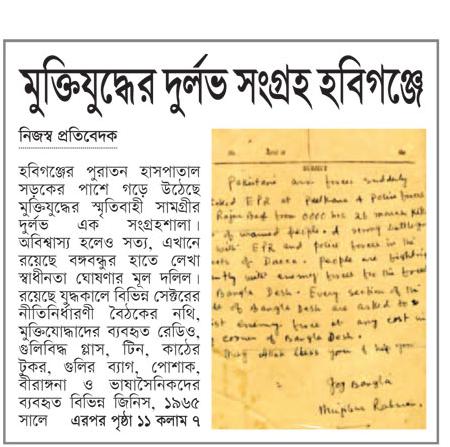 মুক্তিযুদ্ধের দুর্লভ সংগ্রহ হবিগঞ্জে
নিজস্ব প্রতিবেদক
হবিগঞ্জের পুরাতন হাসপাতাল
সড়কের পাশে গড়ে উঠেছে
মুক্তিযুদ্ধের স্মৃতিবাহী সামগ্রীর
দুর্লভ এক সংগ্রহশালা।
অবিশ্বাস্য হলেও সত্য, এখানে
রয়েছে বঙ্গবন্ধুর হাতে লেখা
স্বাধীনতা ঘোষণার মূল দলিল।
রয়েছে যুদ্ধকালে বিভিন্ন সেক্টরের
নীতিনির্ধারণী বৈঠকের নথি,
মুক্তিযোদ্ধাদের ব্যবহৃত রেডিও,
গুলিবিদ্ধ গ্লাস, টিন, কাঠের
টুকর, গুলির ব্যাগ, পোশাক,
বীরাঙ্গনা ও ভাষাসৈনিকদের
ব্যবহৃত বিভিন্ন জিনিস, ১৯৬৫
সালে এরপর পৃষ্ঠা ১১ কলাম ৭
Pakistani forces suddenly
EPR at Peelkhana & Police forces
Rajar Bag from 0000 hrs 26 march
of unarmed people. A strong
with EPR and police forces in the
of Dacca. People are fighting
with enemy forces for the
Bangla Desh. Every section of the
of Bangla Desh are asked to
enemy force at any cost in
corner of Bangla Desh.
May Allah bless you & help you
Joy Bangla
Mujibur Rahman